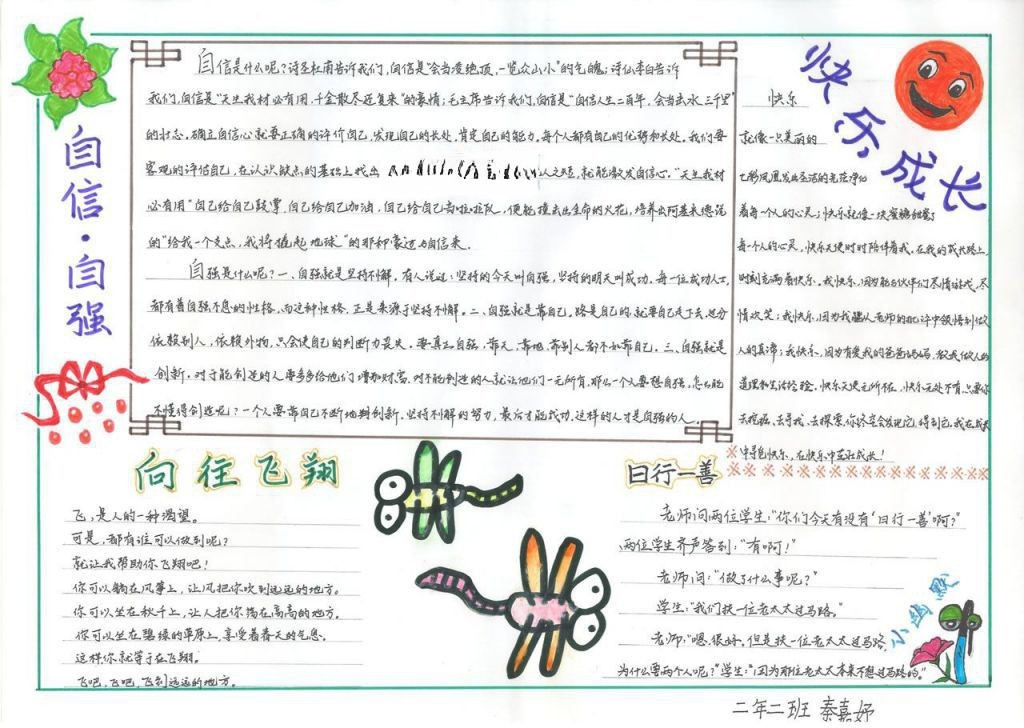 自信·自强
自信是什么呢?诗圣杜甫告诉我们,自信是"会当凌绝顶,一览众山小"的气魄;诗仙李白告诉
我们,自信是"天生我材必有用,千金散尽还复来"的豪情;毛主席告诉我们,自信是"自信人生二百年,会当击水三千里"
的壮志。确立自信心就要正确的评价自己,发现自己的长处,肯定自己的能力。每个人都有自己的优势和长处。我们要
客观的评估自己,在认识缺点的基础上找出 人之短,就能激发自信心。"天生我材
必有用"自己给自己鼓掌,自己给自己加油,自己给自己当啦啦队,便能撞击出生命的火花,培养出阿基米德说
的"给我一个支点,我将撬起地球"的那种豪迈与自信来。
自强是什么呢?一、自强就是坚持不懈。有人说过:坚持的今天叫自强,坚持的明天叫成功。每一位成功人士,
都有着自强不息的性格,而这种性格,正是来源于坚持不懈。二、自强就是靠自己。路是自己的,就要自己走下去,过分
依赖别人,依赖外物,只会使自己的判断力丧失。要真正自强,靠天,靠地,靠别人都不如靠自己。三、自强就是
创新。对于能创造的人要多多给他们增加财富,对不能创造的人就让他们一无所有。那么一个人要想自强,怎么能
不懂得创造呢?一个人要靠自己不断地开创新,坚持不懈的努力,最后才能成功。这样的人才是自强的人。
快乐成长
快乐
就像一只美丽的
七彩凤凰发出圣洁的光芒净化
着每个人的心灵;快乐就像一块蜜糖甜蜜了
每个人的心灵,快乐天使时时陪伴着我,在我的成长路上,
时刻充满着快乐。我快乐,因为能与伙伴们尽情游戏,尽
情欢笑;我快乐,因为我能从老师的批评中领悟到做
人的真谛;我快乐,因为有爱我的爸爸妈妈,教我做人的
道理和生活经验。快乐又是无所在,快乐无处不有,只要你
去挖掘、去寻找、去探索,你终究会发现它,得到它。我在成长
中寻觅快乐,在快乐中茁壮成长!
向往飞翔
飞,是人的一种渴望。
可是,都有谁可以做到呢?
就让我帮助你飞翔吧!
你可以躺在风筝上,让风把你吹到远远的地方。
你可以坐在秋千上,让人把你荡在高高的地方。
你可以坐在碧绿的草原上,享受着春天的气息。
这样你就等于在飞翔。
飞吧,飞吧,飞到远远的地方。
日行一善
老师问两位学生:"你们今天有没有'日行一善'啊?"
两位学生齐声答到:"有啊!"
老师问:"做了什么事呢?"
学生:"我们扶一位老太太过马路。"
老师:"嗯,很好,但是扶一位老太太过马路,
为什么要两个人呢?"学生:"因为那位老太太本来不想过马路的。"
小幽默
二年二班 秦嘉妤